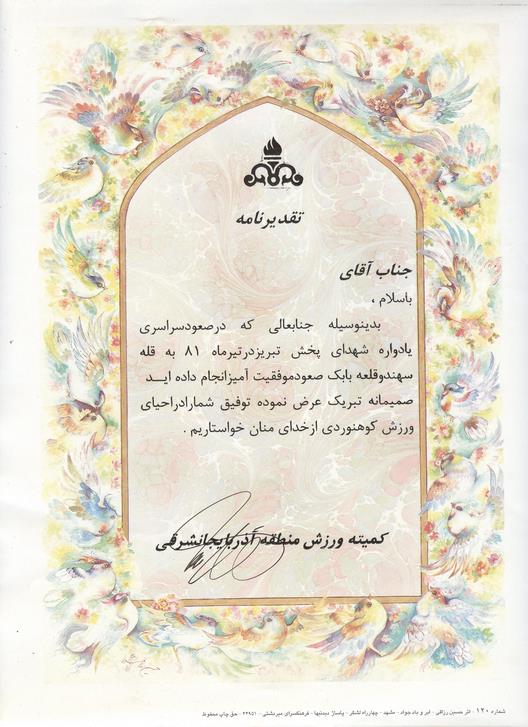 تقدیرنامه
جناب آقای
باسلام ،
بدینوسیله جنابعالی که درصعودسراسری
یادواره شهدای پخش تبریزدرتیرماه ۸۱ به قله
سهندوقلعه بابک صعودموفقیت آمیزانجام داده اید
صمیمانه تبریک عرض نموده توفیق شمارادراحیای
ورزش کوهنوردی ازخدای منان خواستاریم .
کمیته ورزش منطقه آذربایجانشرقی
شماره ۱۲۰ - اثر حسین رزاقی - ابر و باد جواد - مشهد - چهارراه لشگر - پاساژ دیدنیها - فرهنگسرای میردشتی - ۴۳۹۵۱ - حق چاپ محفوظ